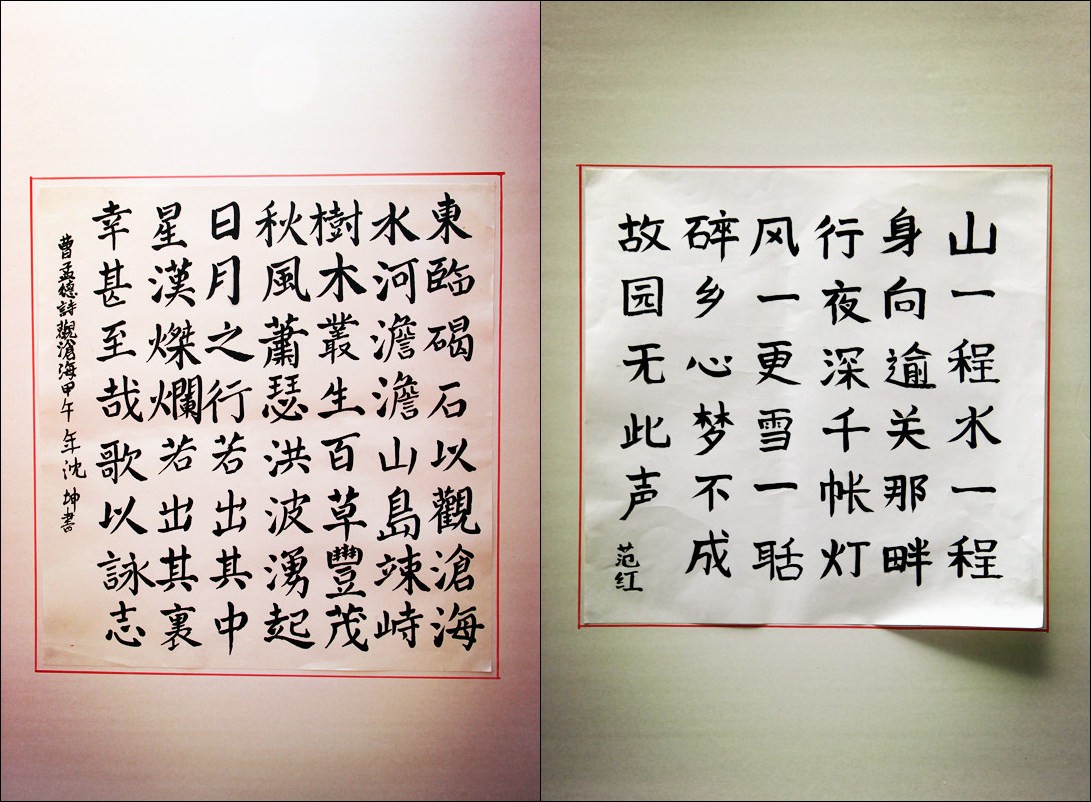 東臨碣石以觀滄海
水河澹澹山島竦峙
樹木叢生百草豐茂
秋風蕭瑟洪波湧起
日月之行若出其中
星漢燦爛若出其裏
幸甚至哉歌以詠志
曹孟德詩觀滄海甲午年沈坤書
山一程水一程
身向逾关那畔
行夜深千帐灯
风一更雪一聒
碎乡心梦不成
故园无此声
范红